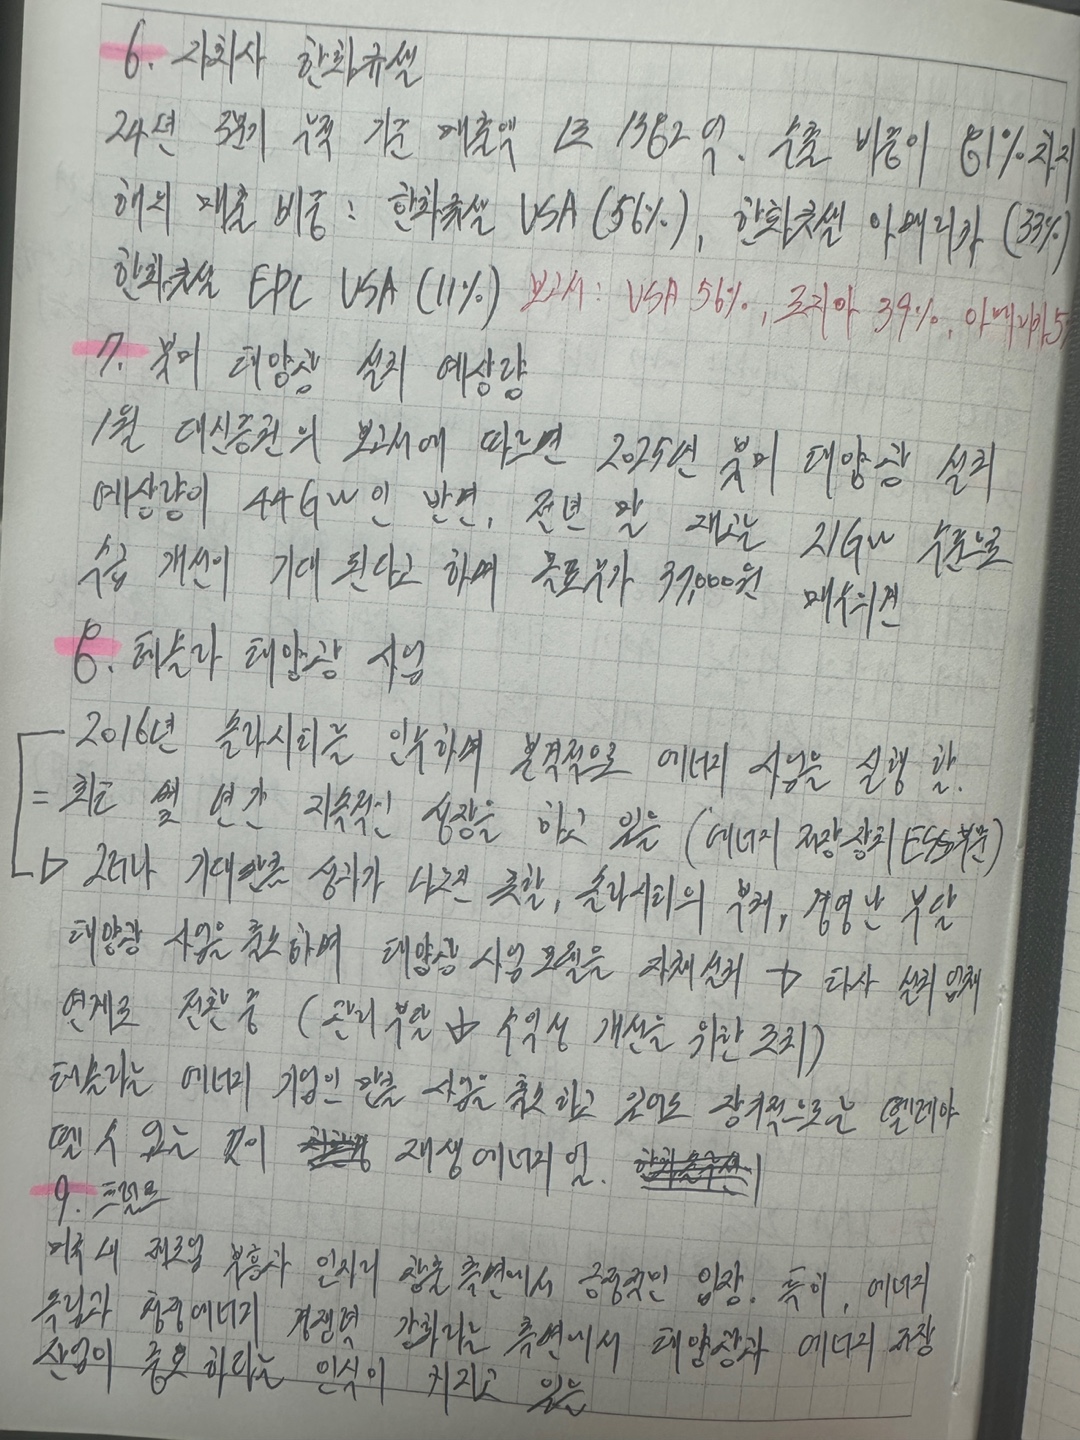 6. 자회사 한화큐셀
24년 3분기 누적 기준 매출액 1조 1362억. 수출 비중이 81% 차지
해외 매출 비중 : 한화큐셀 USA (56%), 한화큐셀 아메리카 (33%)
한화큐셀 EPC USA (11%) 보고서 : USA 56%, 조지아 39%, 아메리카 5%
7. 북미 태양광 설치 예상량
1월 대신증권의 보고서에 따르면 2025년 북미 태양광 설치
예상량이 44GW인 반면, 전년 말 재고는 21GW 수준으로
수급 개선이 기대 된다고 하며 목표주가 37,000원 매수의견
8. 테슬라 태양광 사업
2016년 솔라시티를 인수하며 본격적으로 에너지 사업을 실행 함.
= 최근 몇 년간 지속적인 성장을 하고 있음 (에너지 저장 장치 ESS부문)
→ 그러나 기대만큼 성과가 나오진 못함, 솔라시티의 부채, 경영난 부담
태양광 사업을 축소하며 태양광 사업 모델을 자체설치 → 타사 설치 업체
연계로 전환 중 (관리 부담 ↓ 수익성 개선을 위한 조치)
테슬라는 에너지 기업인 만큼 사업을 축소 하고 있어도 장기적으로는 뗄레야
뗄 수 없는 것이 재생 에너지임.
9. 트럼프
미국 내 제조업 부흥과 일자리 창출 측면에서 긍정적인 입장. 특히, 에너지
독립과 청정에너지 경쟁력 강화라는 측면에서 태양광과 에너지 저장
산업이 중요 하다는 인식이 커지고 있음